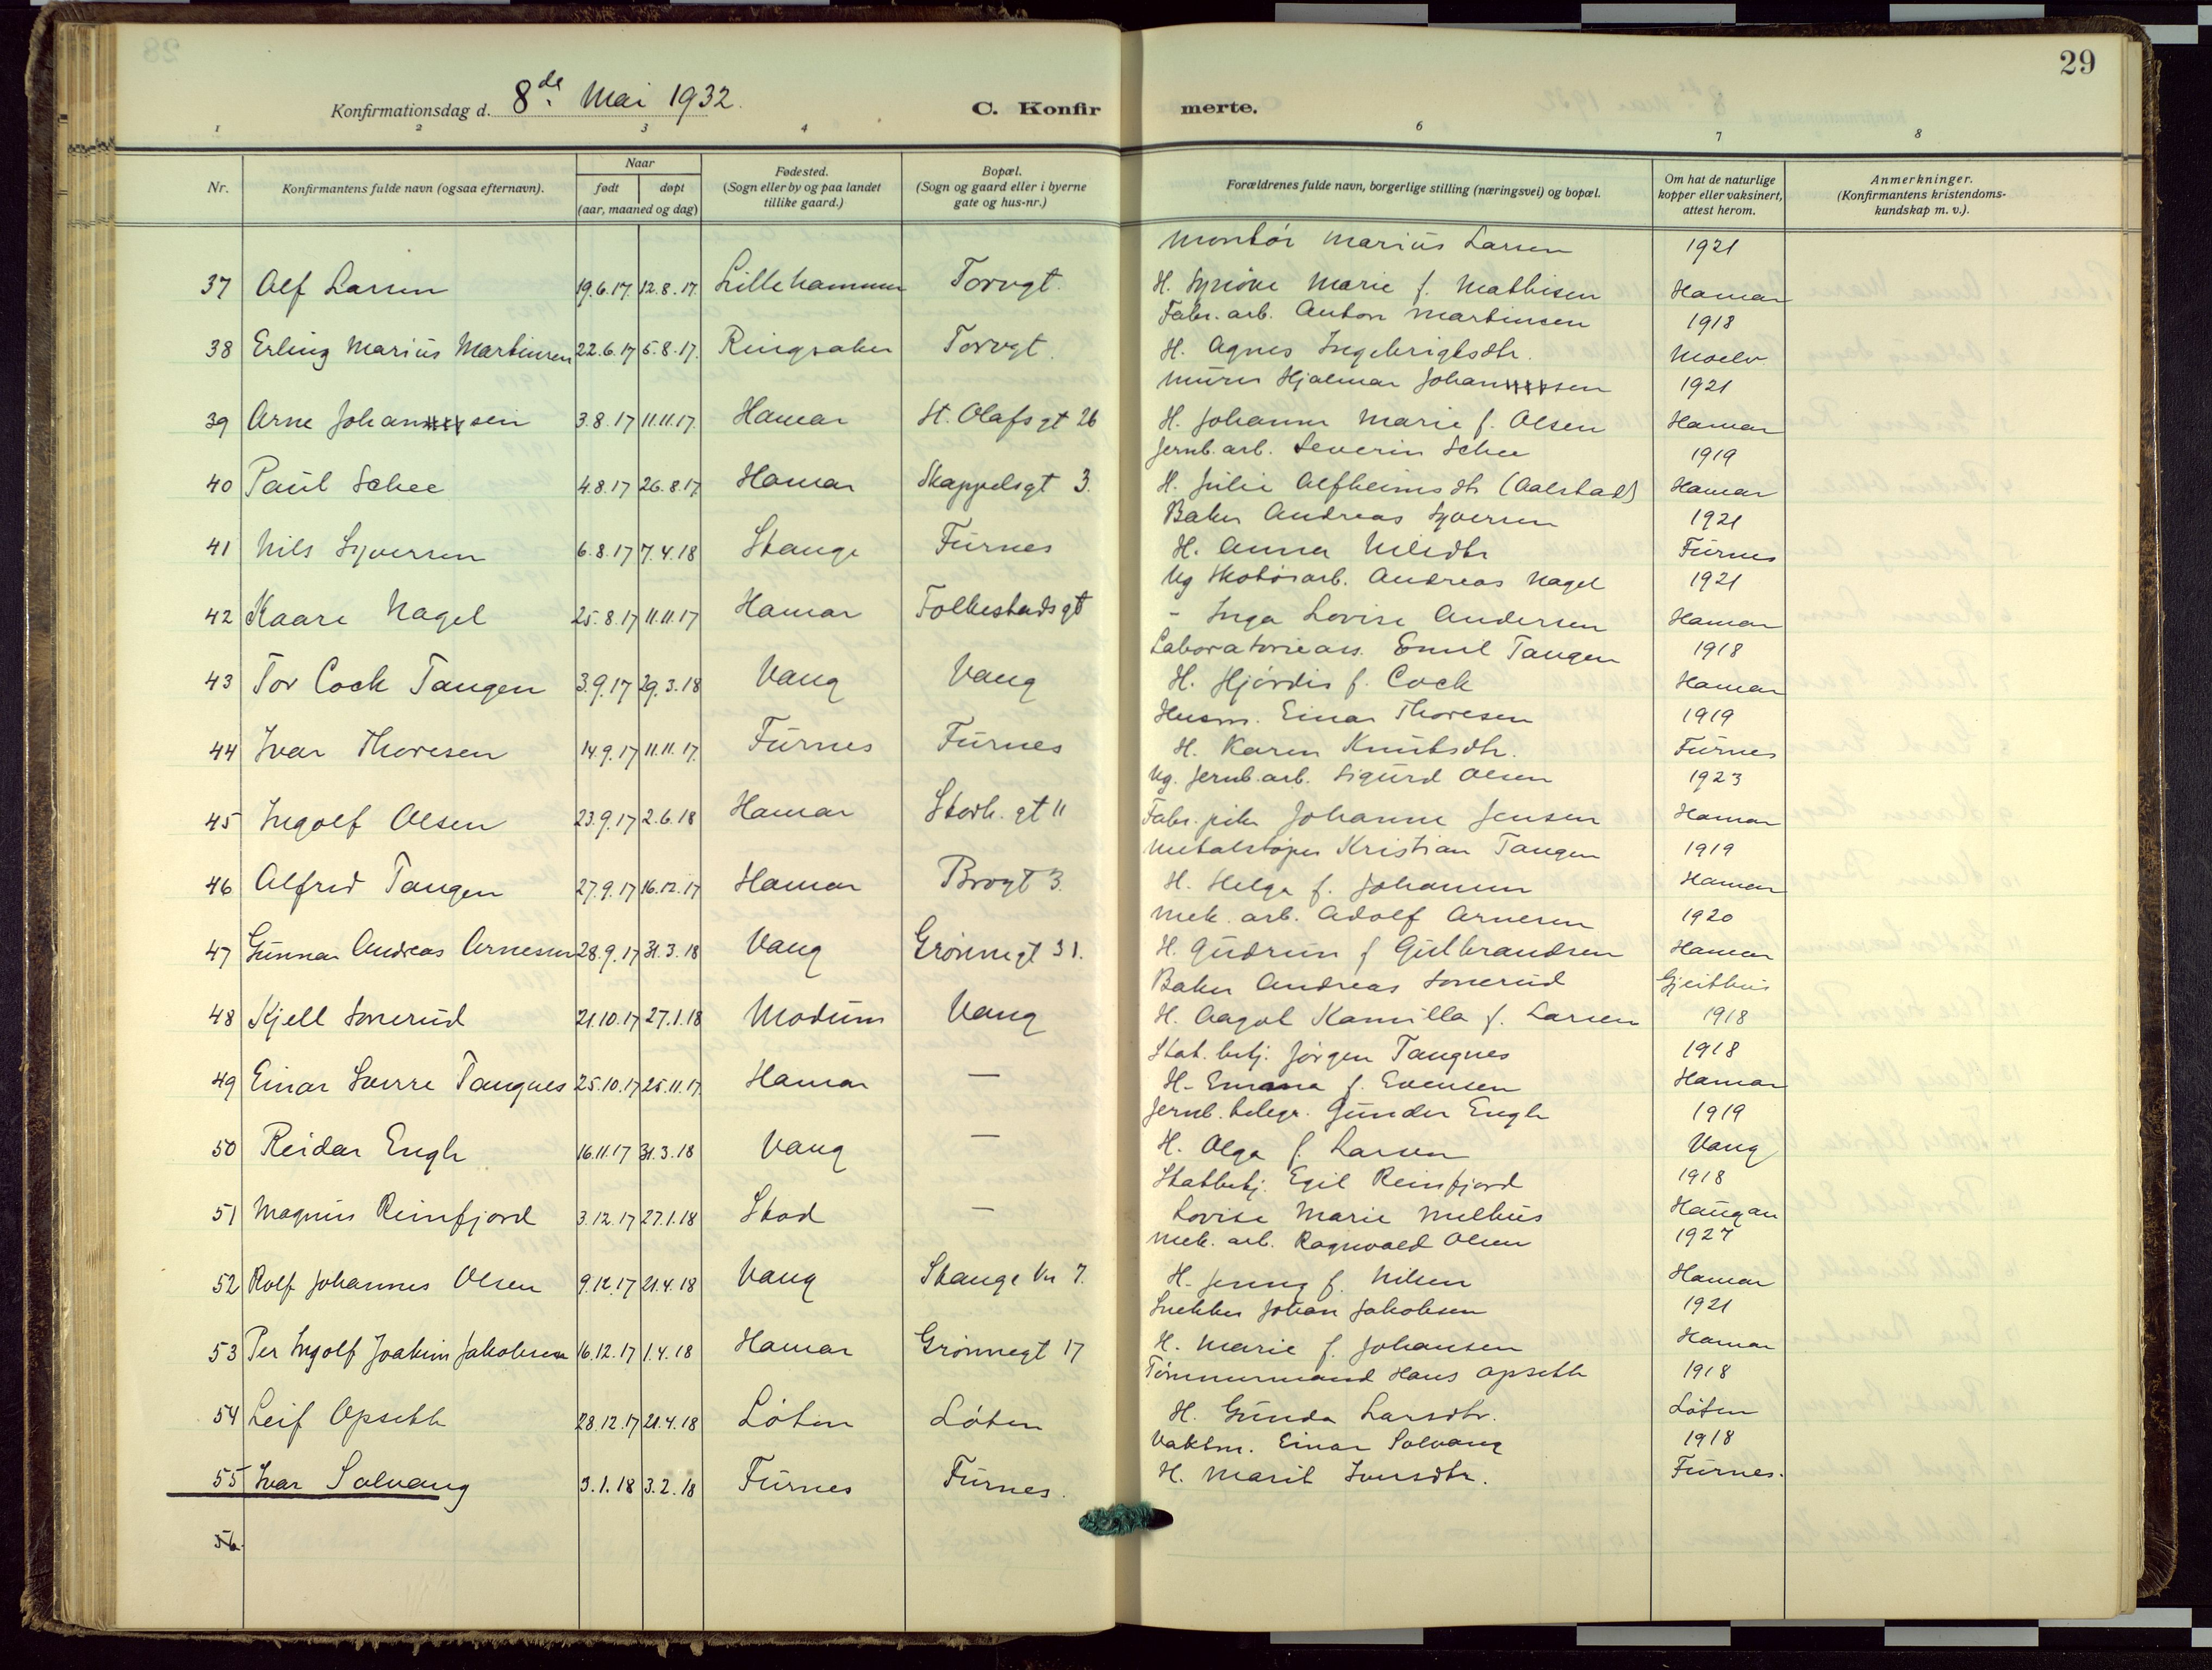 29
Konfirmationsdag d. 8de Mai 1932.
C. Konfirmerte.
1 2 3 4 6 7 8
Nr.
Konfirmantens fulde navn (ogsaa efternavn).
Naar
født døpt
(aar, maaned og dag)
Fødested.
(Sogn eller by og paa landet
tillike gaard.)
Bopæl.
(Sogn og gaard eller i byerne
gate og hus-nr.)
Forældrenes fulde navn, borgerlige stilling (næringsvei) og bopæl.
Om hat de naturlige
kopper eller vaksinert,
attest herom.
Anmerkninger.
(Konfirmantens kristendoms-
kundskap m. v.).
Montør Marius Larsen 1921
37 Alf Larsen 19.6.17. 12.8.17. Lillehammer Torvgt. H. Synøve Marie f. Mathisen Hamar
Fabr. arb. Anton Martinsen 1918
38 Erling Marius Martinsen 22.6.17 5.8.17. Ringsaker Torvgt. H. Agnes Ingebrigtsdtr. Moelv
Murer Hjalmar Johansen 1921
39 Arne Johansen 3.8.17 11.11.17. Hamar St. Olafsgt 26 H. Johanne Marie f. Olsen Hamar
Jernb. arb. Severin Schee 1919
40 Paul Schee 4.8.17 26.8.17 Hamar Skappelsgt 3. H. Julie Alfheimsdtr (Aalstad) Hamar
Baker Andreas Syversen 1921
41 Nils Syversen 6.8.17 7.4.18 Stange Furnes H. Anna Nilsdtr Furnes
Ug Skotøiarb. Andreas Nagel 1921
42 Kaare Nagel 25.8.17 11.11.17 Hamar Folkestadsgt - Inga Lovise Andersen Hamar
Laboratorieass. Emil Tangen 1918
43 Tor Cock Tangen 3.9.17 29.3.18 Vang Vang H. Hjördis f. Cock Hamar
Husm. Einar Thoresen 1919
44 Ivar Thoresen 14.9.17 11.11.17. Furnes Furnes H. Karen Knutsdtr. Furnes
Ug. Jernb. arb. Sigurd Olsen 1923
45 Ingolf Olsen 23.9.17 2.6.18 Hamar Storh. gt 11 Fabr. pike Johanne Jensen Hamar
Metalstøper Kristian Tangen 1919
46 Alfred Tangen 27.9.17 16.12.17 Hamar Brogt 3. H. Helga f. Johansen Hamar
Mek. arb. Adolf Arnesen 1920
47 Gunnar Andreas Arnesen 28.9.17 31.3.18 Vang Grønnegt 31. H. Gudrun f Gulbrandsen Hamar
Baker Andreas Sonerud Gjeithus
48 Kjell Sonerud 21.10.17 27.1.18 Modum Vang H. Aagot Kamilla f. Larsen 1918
Stat. betj. Jørgen Tangnes 1918
49 Einar Sverre Tangnes 25.10.17 25.11.17. Hamar — H. Emma f. Evensen Hamar
Jernb. telegr. Gunder Engh 1919
50 Reidar Engh 16.11.17 31.3.18 Vang — H. Olga f. Larsen Vang
Statbetj. Egil Reinfjord 1918
51 Magnus Reinfjord 3.12.17 27.1.18 Stod — Lovise Marie Melhus Haugan
Mek. arb. Ragnvald Olsen 1927
52 Rolf Johannes Olsen 9.12.17 21.4.18 Vang Stange Vn 7. H. Jenny f. Nilsen Hamar
Snekker Johan Jakobsen 1921
53 Per Ingolf Joakim Jakobsen 16.12.17 1.4.18 Hamar Grønnegt 17 H. Marie f. Johansen Hamar
Tømmermand Hans Opseth 1918
54 Leif Opseth 28.12.17 21.4.18 Løten Løten H. Gunda Larsdtr. Løten
Vaktm. Einar Solvang 1918
55 Ivar Solvang 3.1.18 3.2.18 Furnes Furnes. H. Marit Iversdtr. Furnes.
56